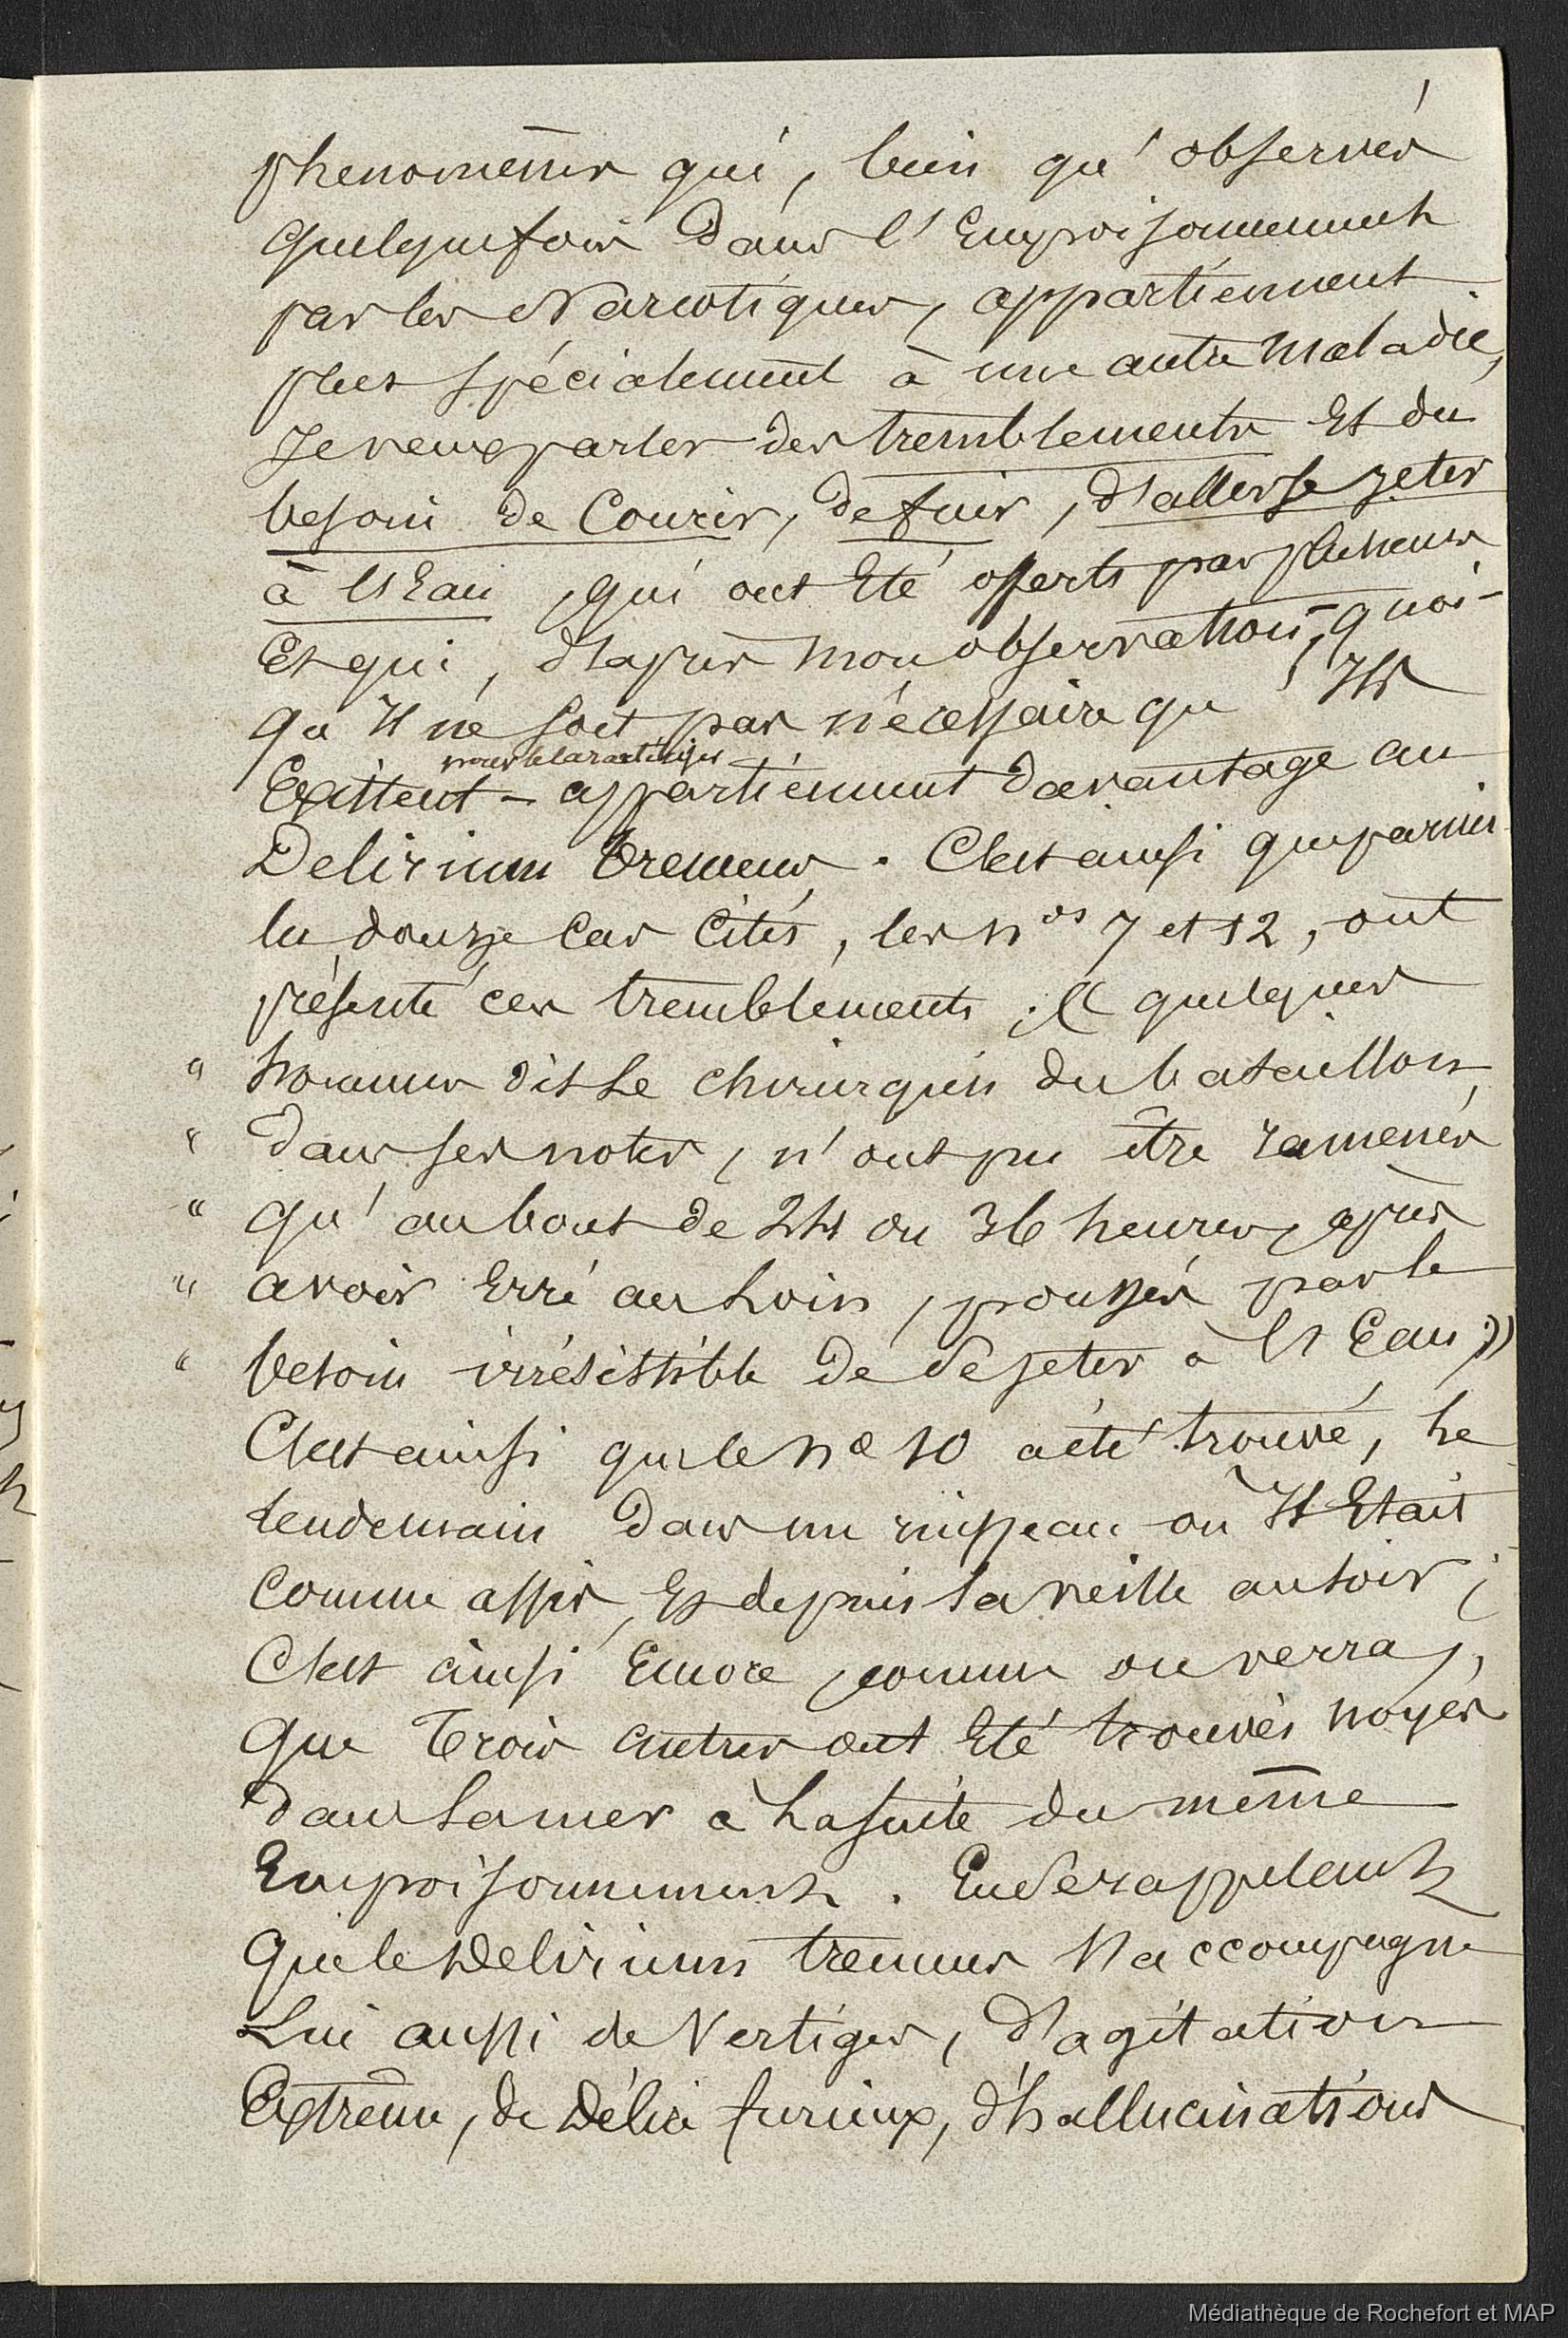 phenomènes qui, bien qu'observés
quelquefois dans l'Empoisonnement
par les Narcotiques, appartiennent
plus spécialement à une autre Maladie,
Je veux parler des tremblements Et du
besoin de Courir, de fuir, d'aller se jeter
à l'Eau, qui ont Eté offerts par plusieurs
Et qui, d'après mon observation, quoi-
qu'Il ne soit pas nécessaire qu'Ils
pour le caractériser
Existent - appartiennent davantage au
Delirium tremens. C'est ainsi que parmi
les douze Cas Cités, les nos 7 et 12, ont
présenté ces tremblements ; « quelques
" hommes dit Le chirurgien du bataillon,
" dans ses notes, n'ont pu être ramenés
" qu'au bout de 24 ou 36 heures, après
" avoir Erré au Loin, poussés par le
" besoin irrésistible de Se jeter à l'Eau »
C'est ainsi que le no 10 a été trouvé, Le
Lendemain dans un ruisseau où Il Etait
Comme assis, Et depuis La veille au soir ;
C'est ainsi Encore, comme on verra,
que Trois autres ont Eté trouvés noyés
dans La mer à La suite du même
Empoisonnement. En Se rappelant
que le Delirium tremens s'accompagne
Lui aussi de Vertiges, d'agitation
Extrême, de Délire furieux, d'hallucinations
Médiathèque de Rochefort et MAP